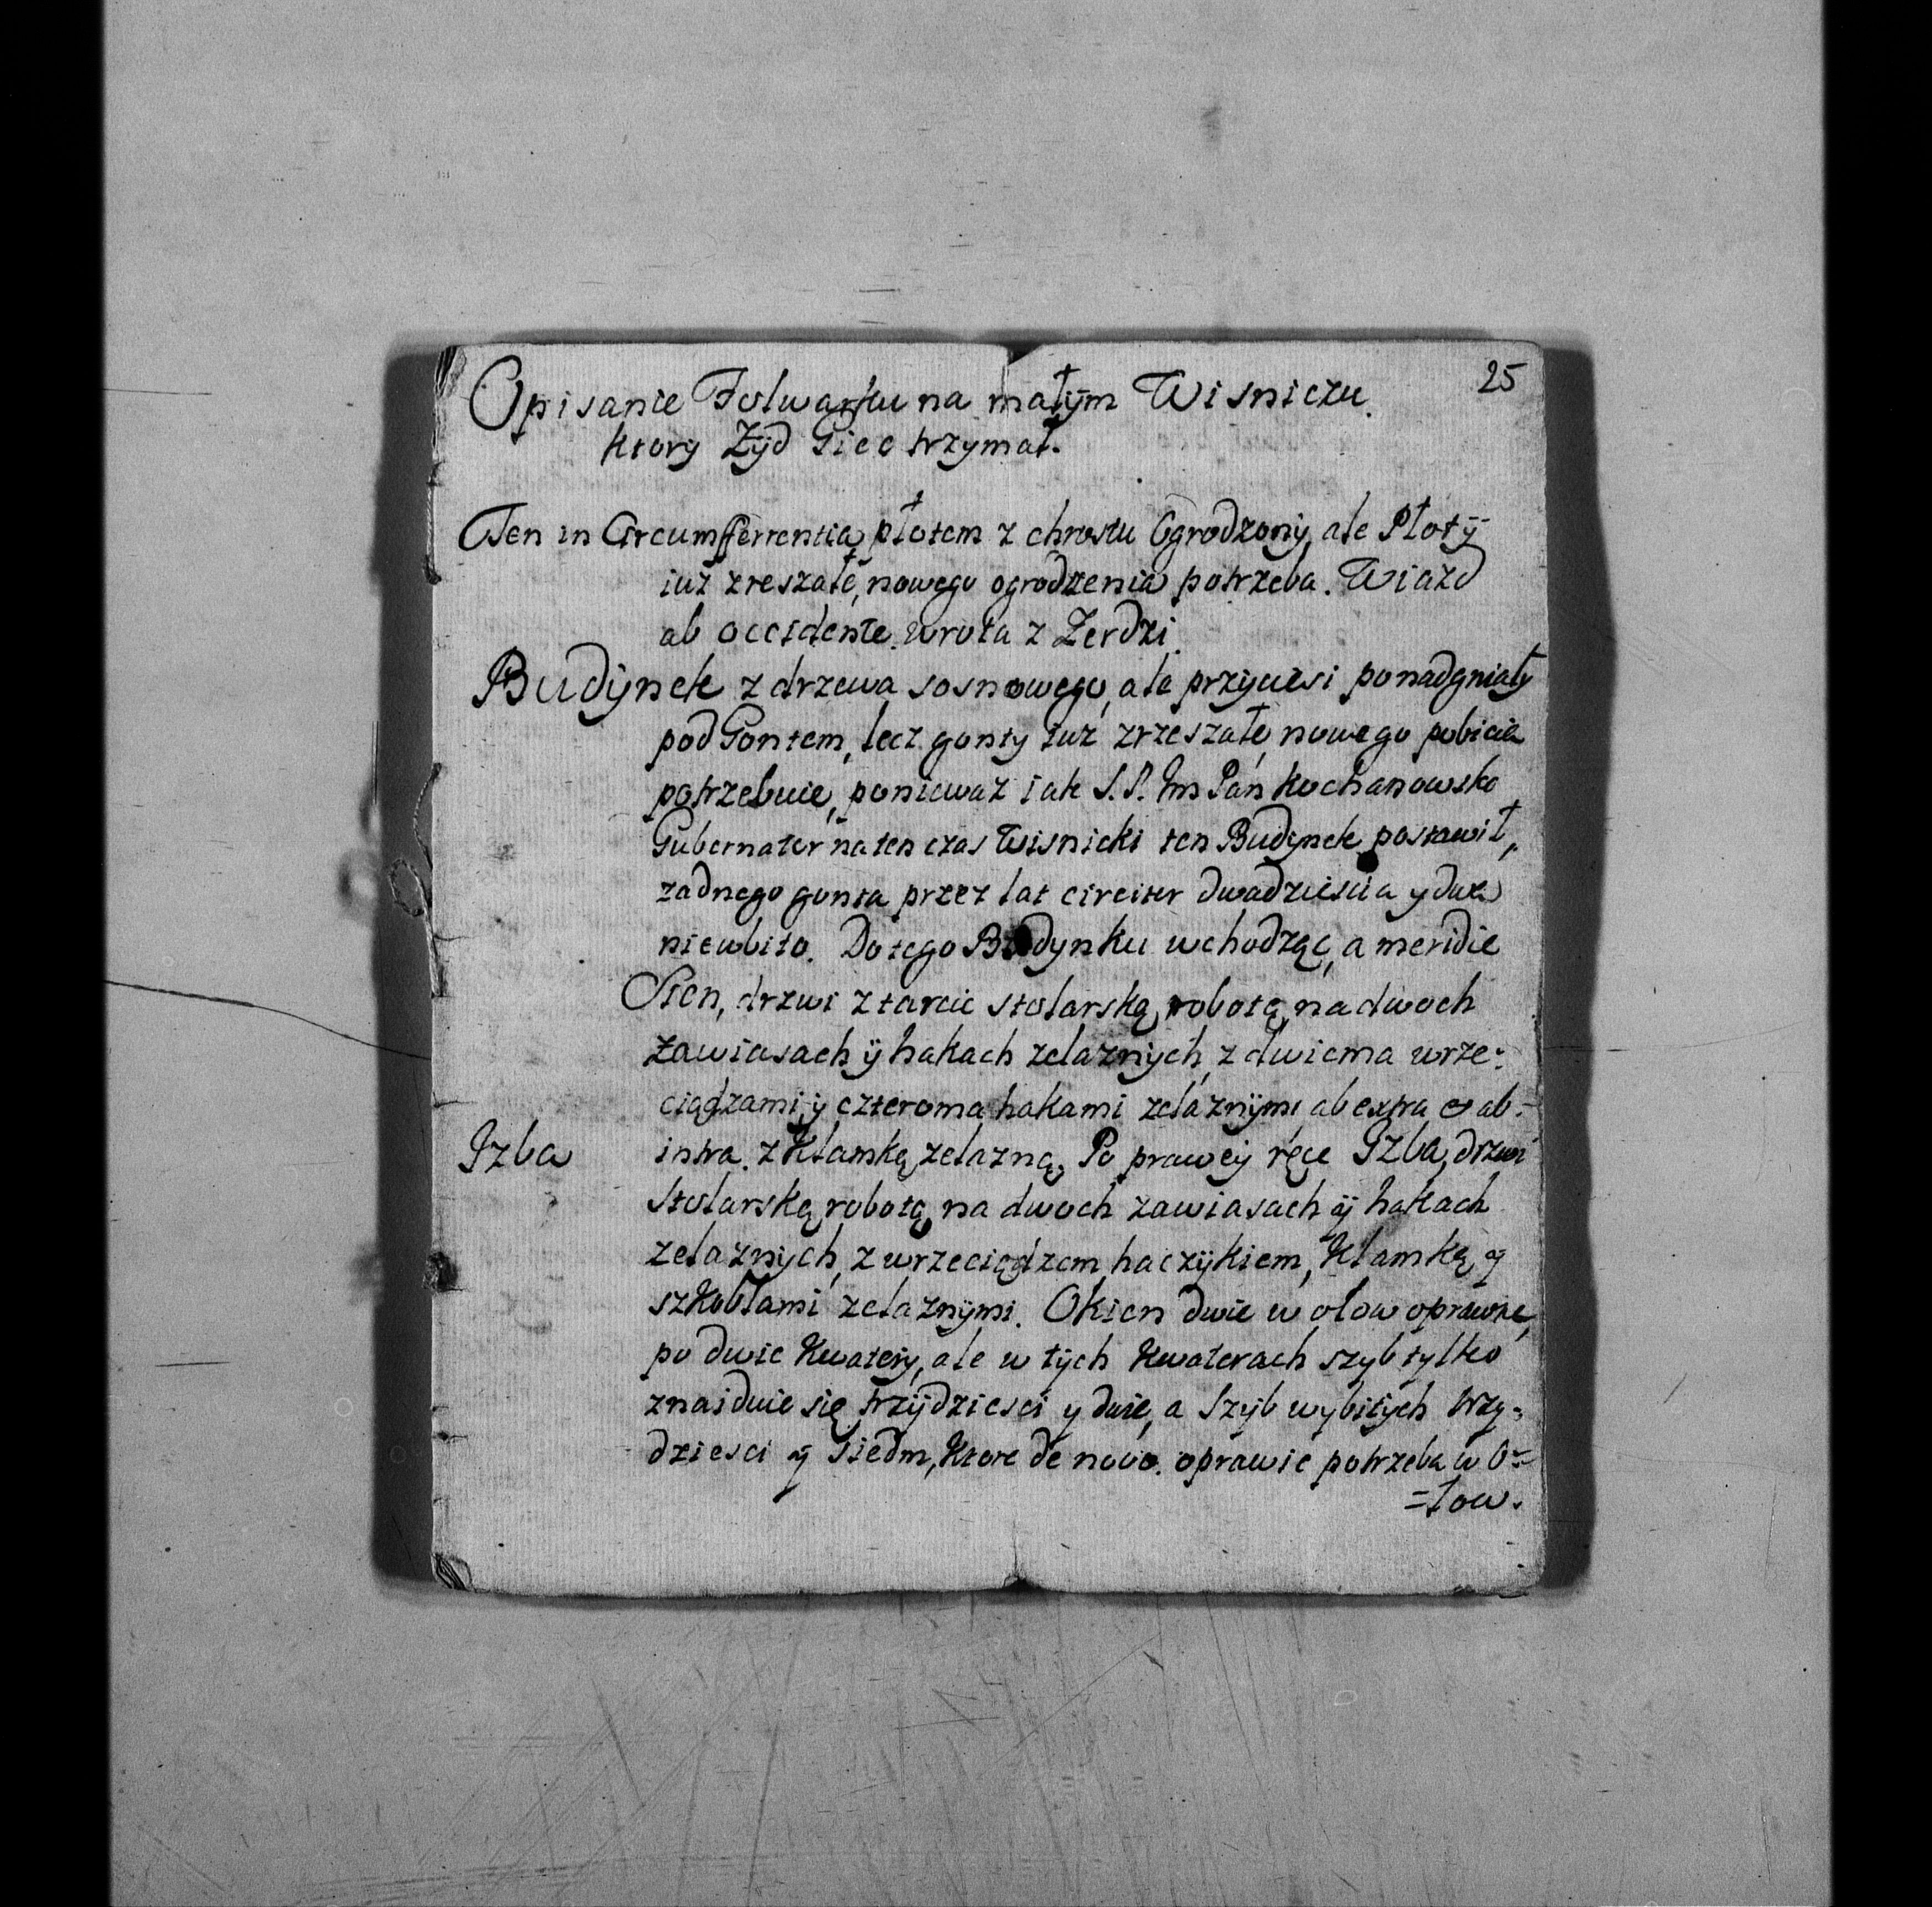 25
Opisanie Folwarku na małÿm Wisniczu.
ktory Zÿd Giec trzymał.
Ten in Circumfferrentią płotem z chrostu Ogrodzonÿ, ale Płotÿ
iuz zreszałe, nowego ogrodzenia potrzeba. Wiazd
ab occidente. wrota z Zerdzi.
Budÿnek z drzewa sosnowego, ale przÿciesi ponadgniałÿ
pod Gontem, lecz gonty iuz zrzeszałe, nowego pobicia
potrzebuie, poniewaz iak S. P. Im Pan Kochanowski
Gubernator na ten czas Wisnicki ten Budynek postawił,
zadnego gonta przez lat circiter dwadziescia y dwa
niewbito. Do tego Budynku wchodząc, a meridie
Sien, drzwi z tarcic stolarską robotą, na dwoch
zawiasach ÿ hakach zelaznÿch, z dwiema wrze-
ciądzami, ÿ czteroma hakami zelaznÿmi ab extra et ab-
Izba intra. z Klamką zelazną. Po prawey ręce Izba, drzwi
stolarską robotą na dwoch zawiasach ÿ hakach
zelaznÿch, z wrzeciądzem, haczÿkiem, Klamką ÿ
szkoblami zelaznÿmi. Okien dwie w ołow oprawne,
po dwie Kwatery, ale w tÿch Kwaterach szyb tylko
znaiduie się trzÿdziesci y dwie, a Szÿb wybitÿch trzy-
dziesci ÿ siedm, Ktore de novo. oprawic potrzeba w O=
=łow.